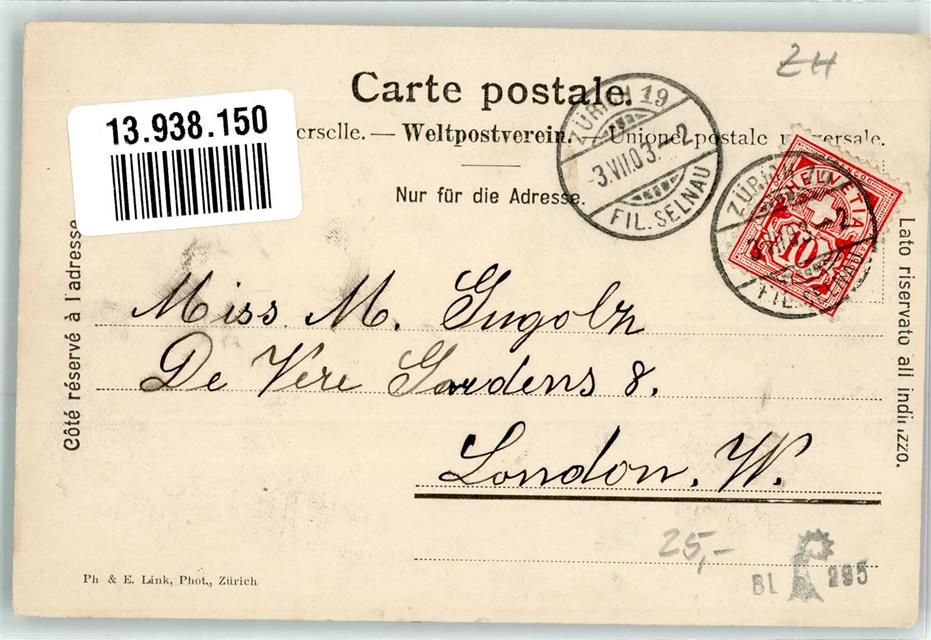 ZH
Carte postale.
13.938.150
erselle. — Weltpostverein. — Unione postale universale.
Nur für die Adresse.
ZÜRICH 19
3.VII.03.–2
FIL. SELNAU
HELVETIA
10
ZÜRICH
3.VII.03.–2
FIL. SELNAU
Côté réservé à l'adresse
Lato riservato all indirizzo.
Miss. M. Gugolz
De Vere Gardens 8.
London. W.
25,-
BL 295
Ph & E. Link, Phot., Zürich